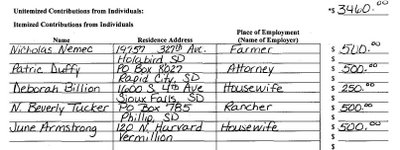 Unitemized Contributions from Individuals: *$ 3460.00
Itemized Contributions from Individuals
Place of Employment
Name Residence Address (Name of Employer)
Nicholas Nemec 19757 327th Ave. Farmer $ 500.00
Holabird SD $
Patric Duffy PO Box 8027 Attorney $ 500.00
Rapid City, SD $
Deborah Billion 1600 S 4th Ave Housewife $ 250.00
Sioux Falls, SD $
N. Beverly Tucker PO Box 785 Rancher $ 500.00
Phillip, SD $
June Armstrong 120 N. Harvard Housewife $ 500.00
Vermillion $